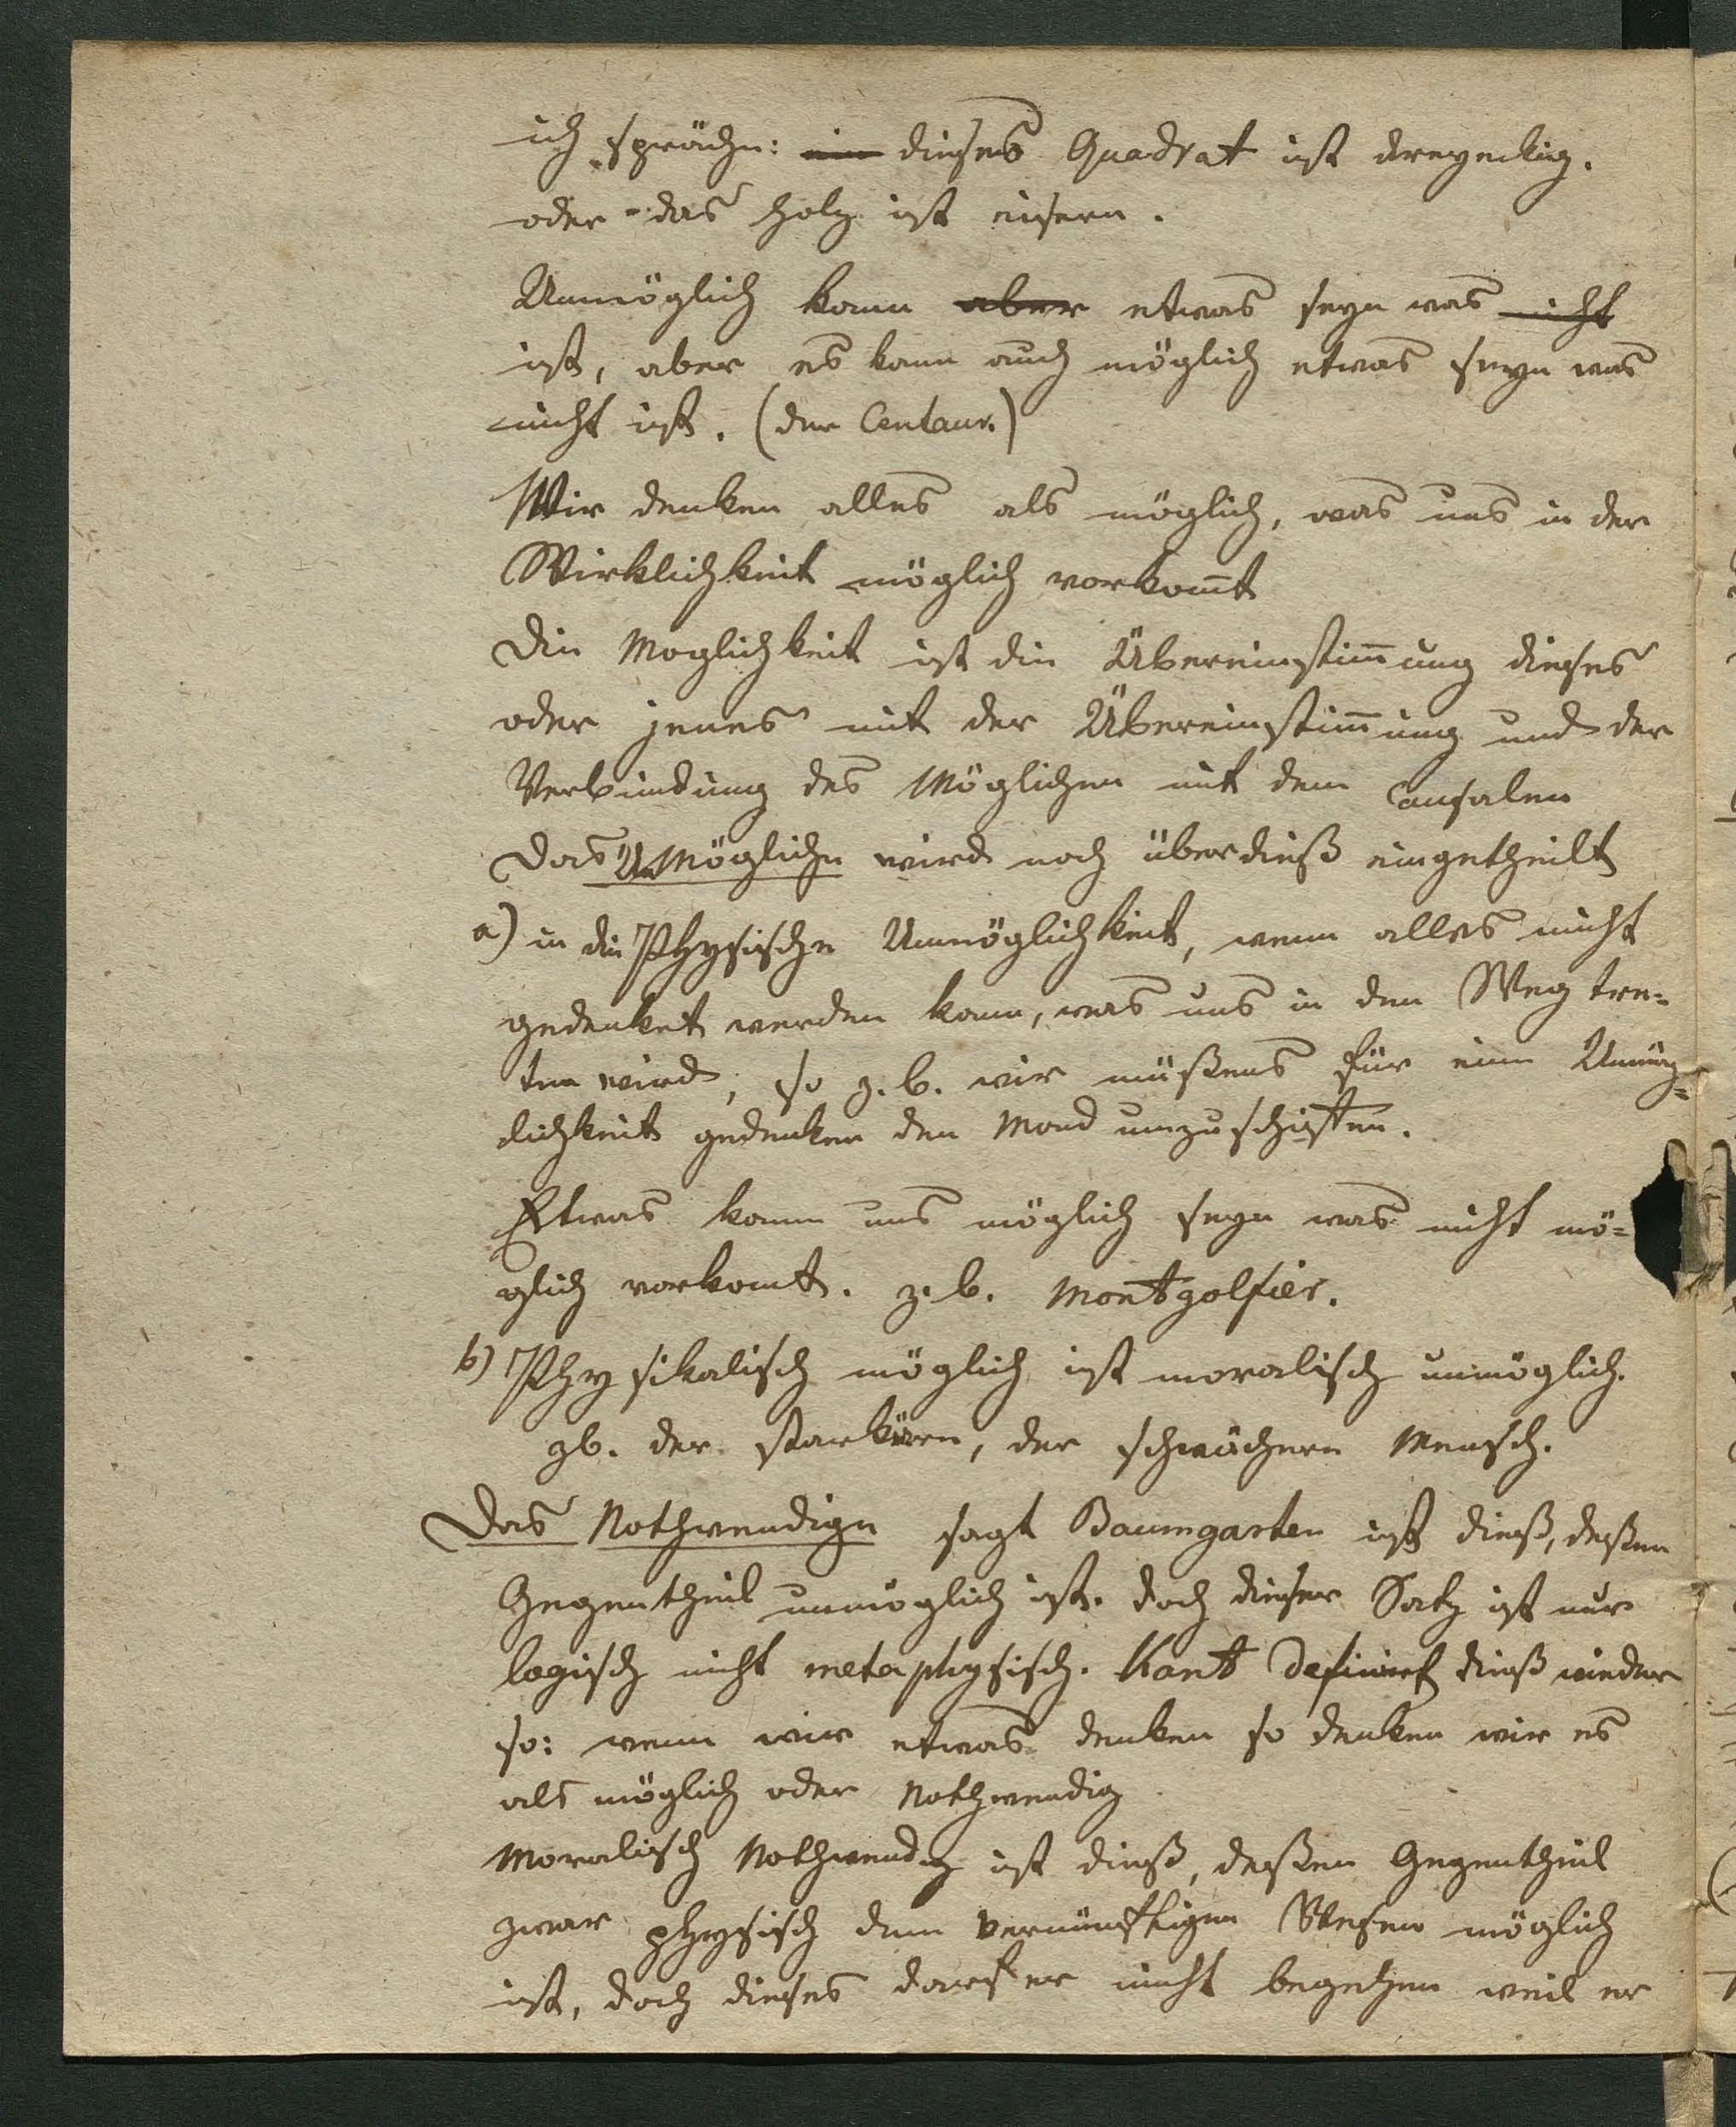 ich spräche: ein dieses Quadrat ist dreyeckig.
oder das Holz ist eisern.
Unmöglich kann aber etwas seyn was nicht
ist, aber es kann auch möglich etwas seyn was
nicht ist. (der Centaur.)
Wir denken alles als möglich, was uns in der
Wirklichkeit möglich vorkom̅t
Die Moglichkeit ist die Übereinstim̅ung dieses
oder jenes mit der Übereinstim̅ung und der
Verbindung des Möglichen mit dem Causalen
Das UnMögliche wird noch überdieß eingetheilt
a) in die Physische Unmöglichkeit, wenn alles nicht
gedenket werden kann, was uns in den Weg tre-
ten wird, so z. b. wir müßens für eine Unmög-
lichkeit gedenken den Mond umzuschiffen.
Etwas kann uns möglich seyn was nicht mö-
glich vorkomt. z. b. Montgolfier.
b) Physikalisch möglich ist moralisch unmöglich.
zb. der starkere, der schwächere Mensch.
Das Nothwendige sagt Baumgarten ist dieß, deßen
Gegentheil unmöglich ist. doch dieser Satz ist nur
logisch nicht metaphysisch. Kant definirt dieß wieder
so: wenn wir etwas denken so denken wir es
als möglich oder Nothwendig
Moralisch Nothwendig ist dieß, deßen Gegentheil
zwar physisch dem vernünftigen Wesen möglich
ist, doch dieses darf er nicht begehen weil er